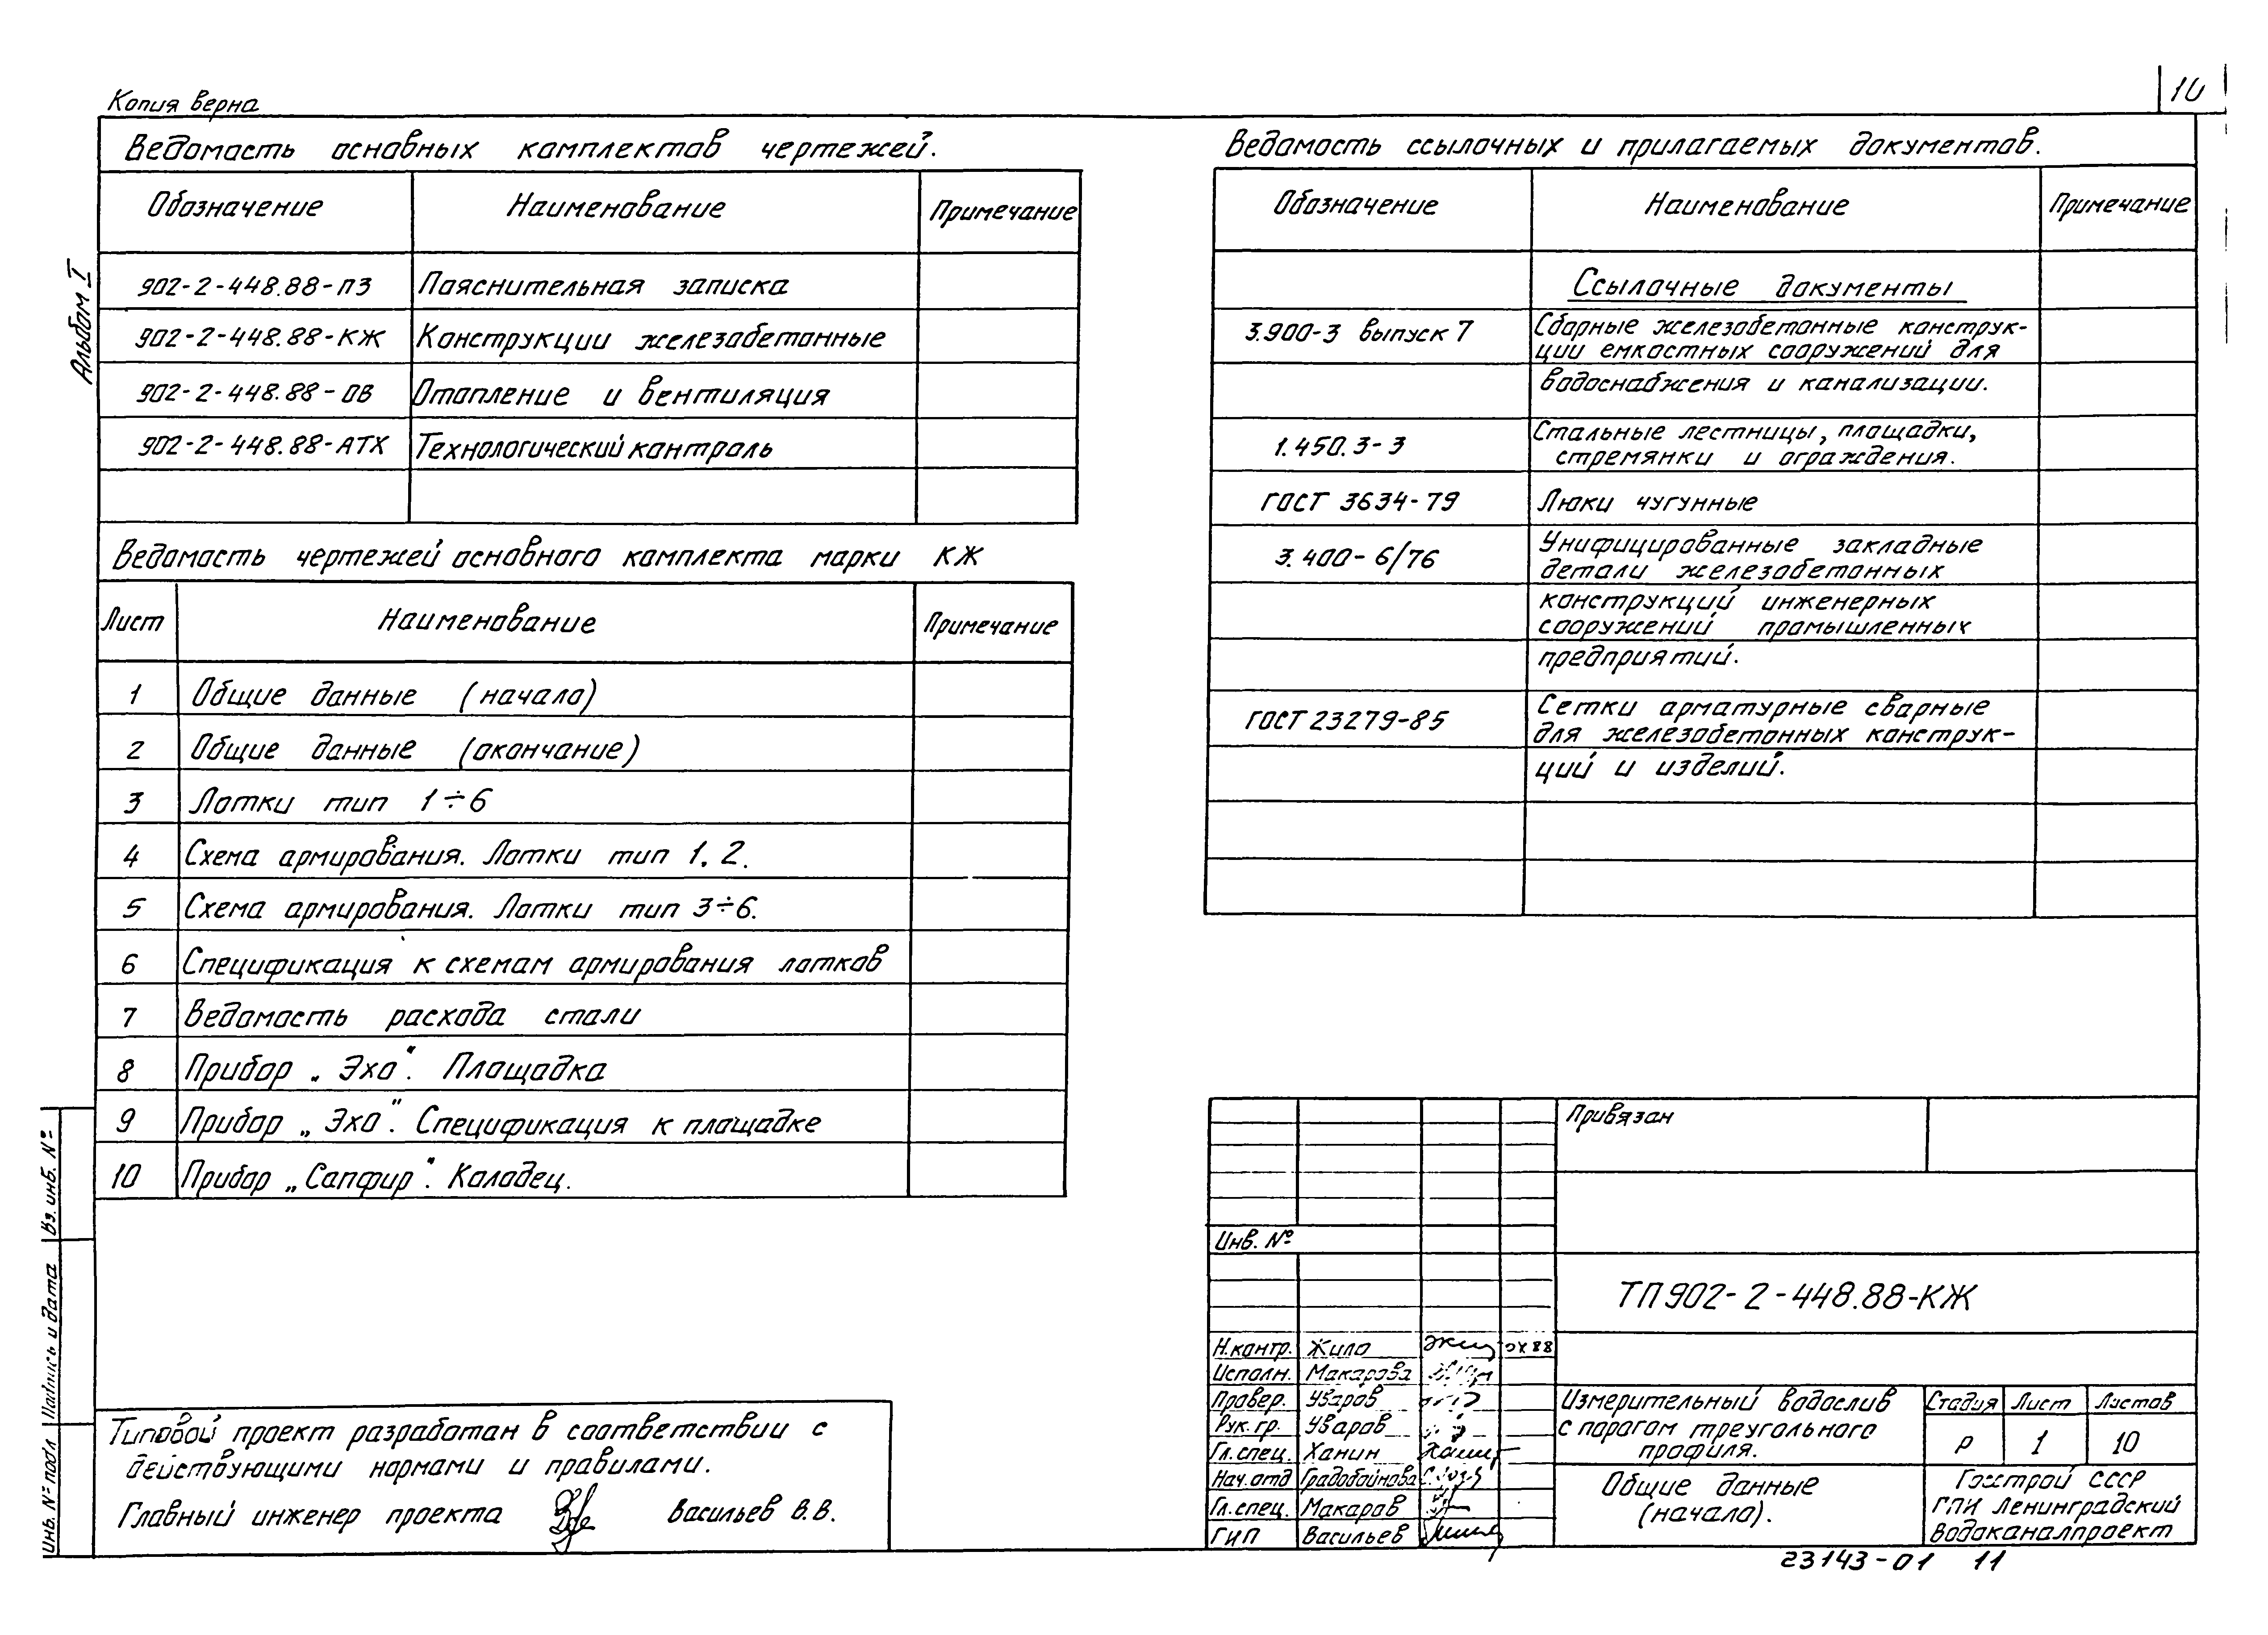 Копия верна
10
Альбом I
Ведомость основных комплектов чертежей.
Обозначение Наименование Примечание
902-2-448.88-ПЗ Пояснительная записка
902-2-448.88-КЖ Конструкции железобетонные
902-2-448.88-ОВ Отопление и вентиляция
902-2-448.88-АТХ Технологический контроль
Ведомость чертежей основного комплекта марки КЖ
Лист Наименование Примечание
1 Общие данные (начало)
2 Общие данные (окончание)
3 Лотки тип 1÷6
4 Схема армирования. Лотки тип 1, 2.
5 Схема армирования. Лотки тип 3÷6.
6 Спецификация к схемам армирования лотков
7 Ведомость расхода стали
8 Прибор „Эхо“. Площадка
9 Прибор „Эхо“. Спецификация к площадке
10 Прибор „Сапфир“. Колодец.
Типовой проект разработан в соответствии с
действующими нормами и правилами.
Главный инженер проекта Васильев В.В.
Вз. инв. №
Подпись и дата
Инв. № подл
Ведомость ссылочных и прилагаемых документов.
Обозначение Наименование Примечание
Ссылочные документы
3.900-3 выпуск 7 Сборные железобетонные конструк-
ции емкостных сооружений для
водоснабжения и канализации.
1.450.3-3 Стальные лестницы, площадки,
стремянки и ограждения.
ГОСТ 3634-79 Люки чугунные
3.400-6/76 Унифицированные закладные
детали железобетонных
конструкций инженерных
сооружений промышленных
предприятий.
ГОСТ 23279-85 Сетки арматурные сварные
для железобетонных конструк-
ций и изделий.
Привязан
Инв. №
ТП 902-2-448.88-КЖ
Н.контр. Жило IX 88
Исполн. Макарова
Провер. Уваров
Рук. гр. Уваров
Гл. спец. Ханин
Нач. отд Градобойнова
Гл. спец. Макаров
ГИП Васильев
Измерительный водослив
с порогом треугольного
профиля.
Стадия Лист Листов
Р 1 10
Общие данные
(начало).
Госстрой СССР
ГПИ Ленинградский
Водоканалпроект
23143-01 11